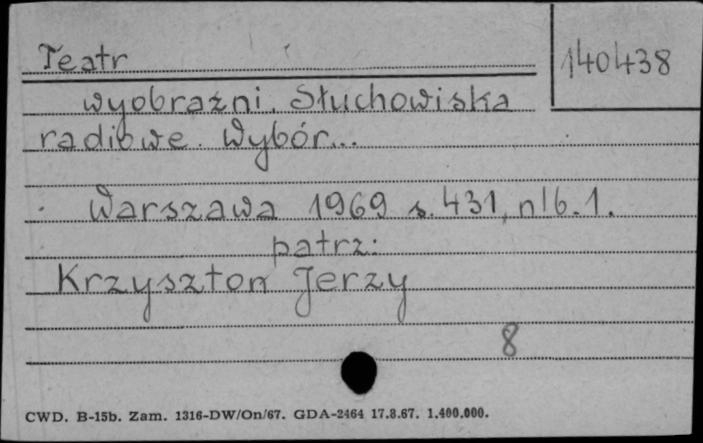 Teatr
140438
wyobraźni. Słuchowiska
radiowe. Wybór...
Warszawa 1969 s. 431, nlb. 1.
patrz:
Krzysztoń Jerzy
8
CWD. B-15b. Zam. 1316-DW/On/67. GDA-2464 17.8.67. 1.400.000.